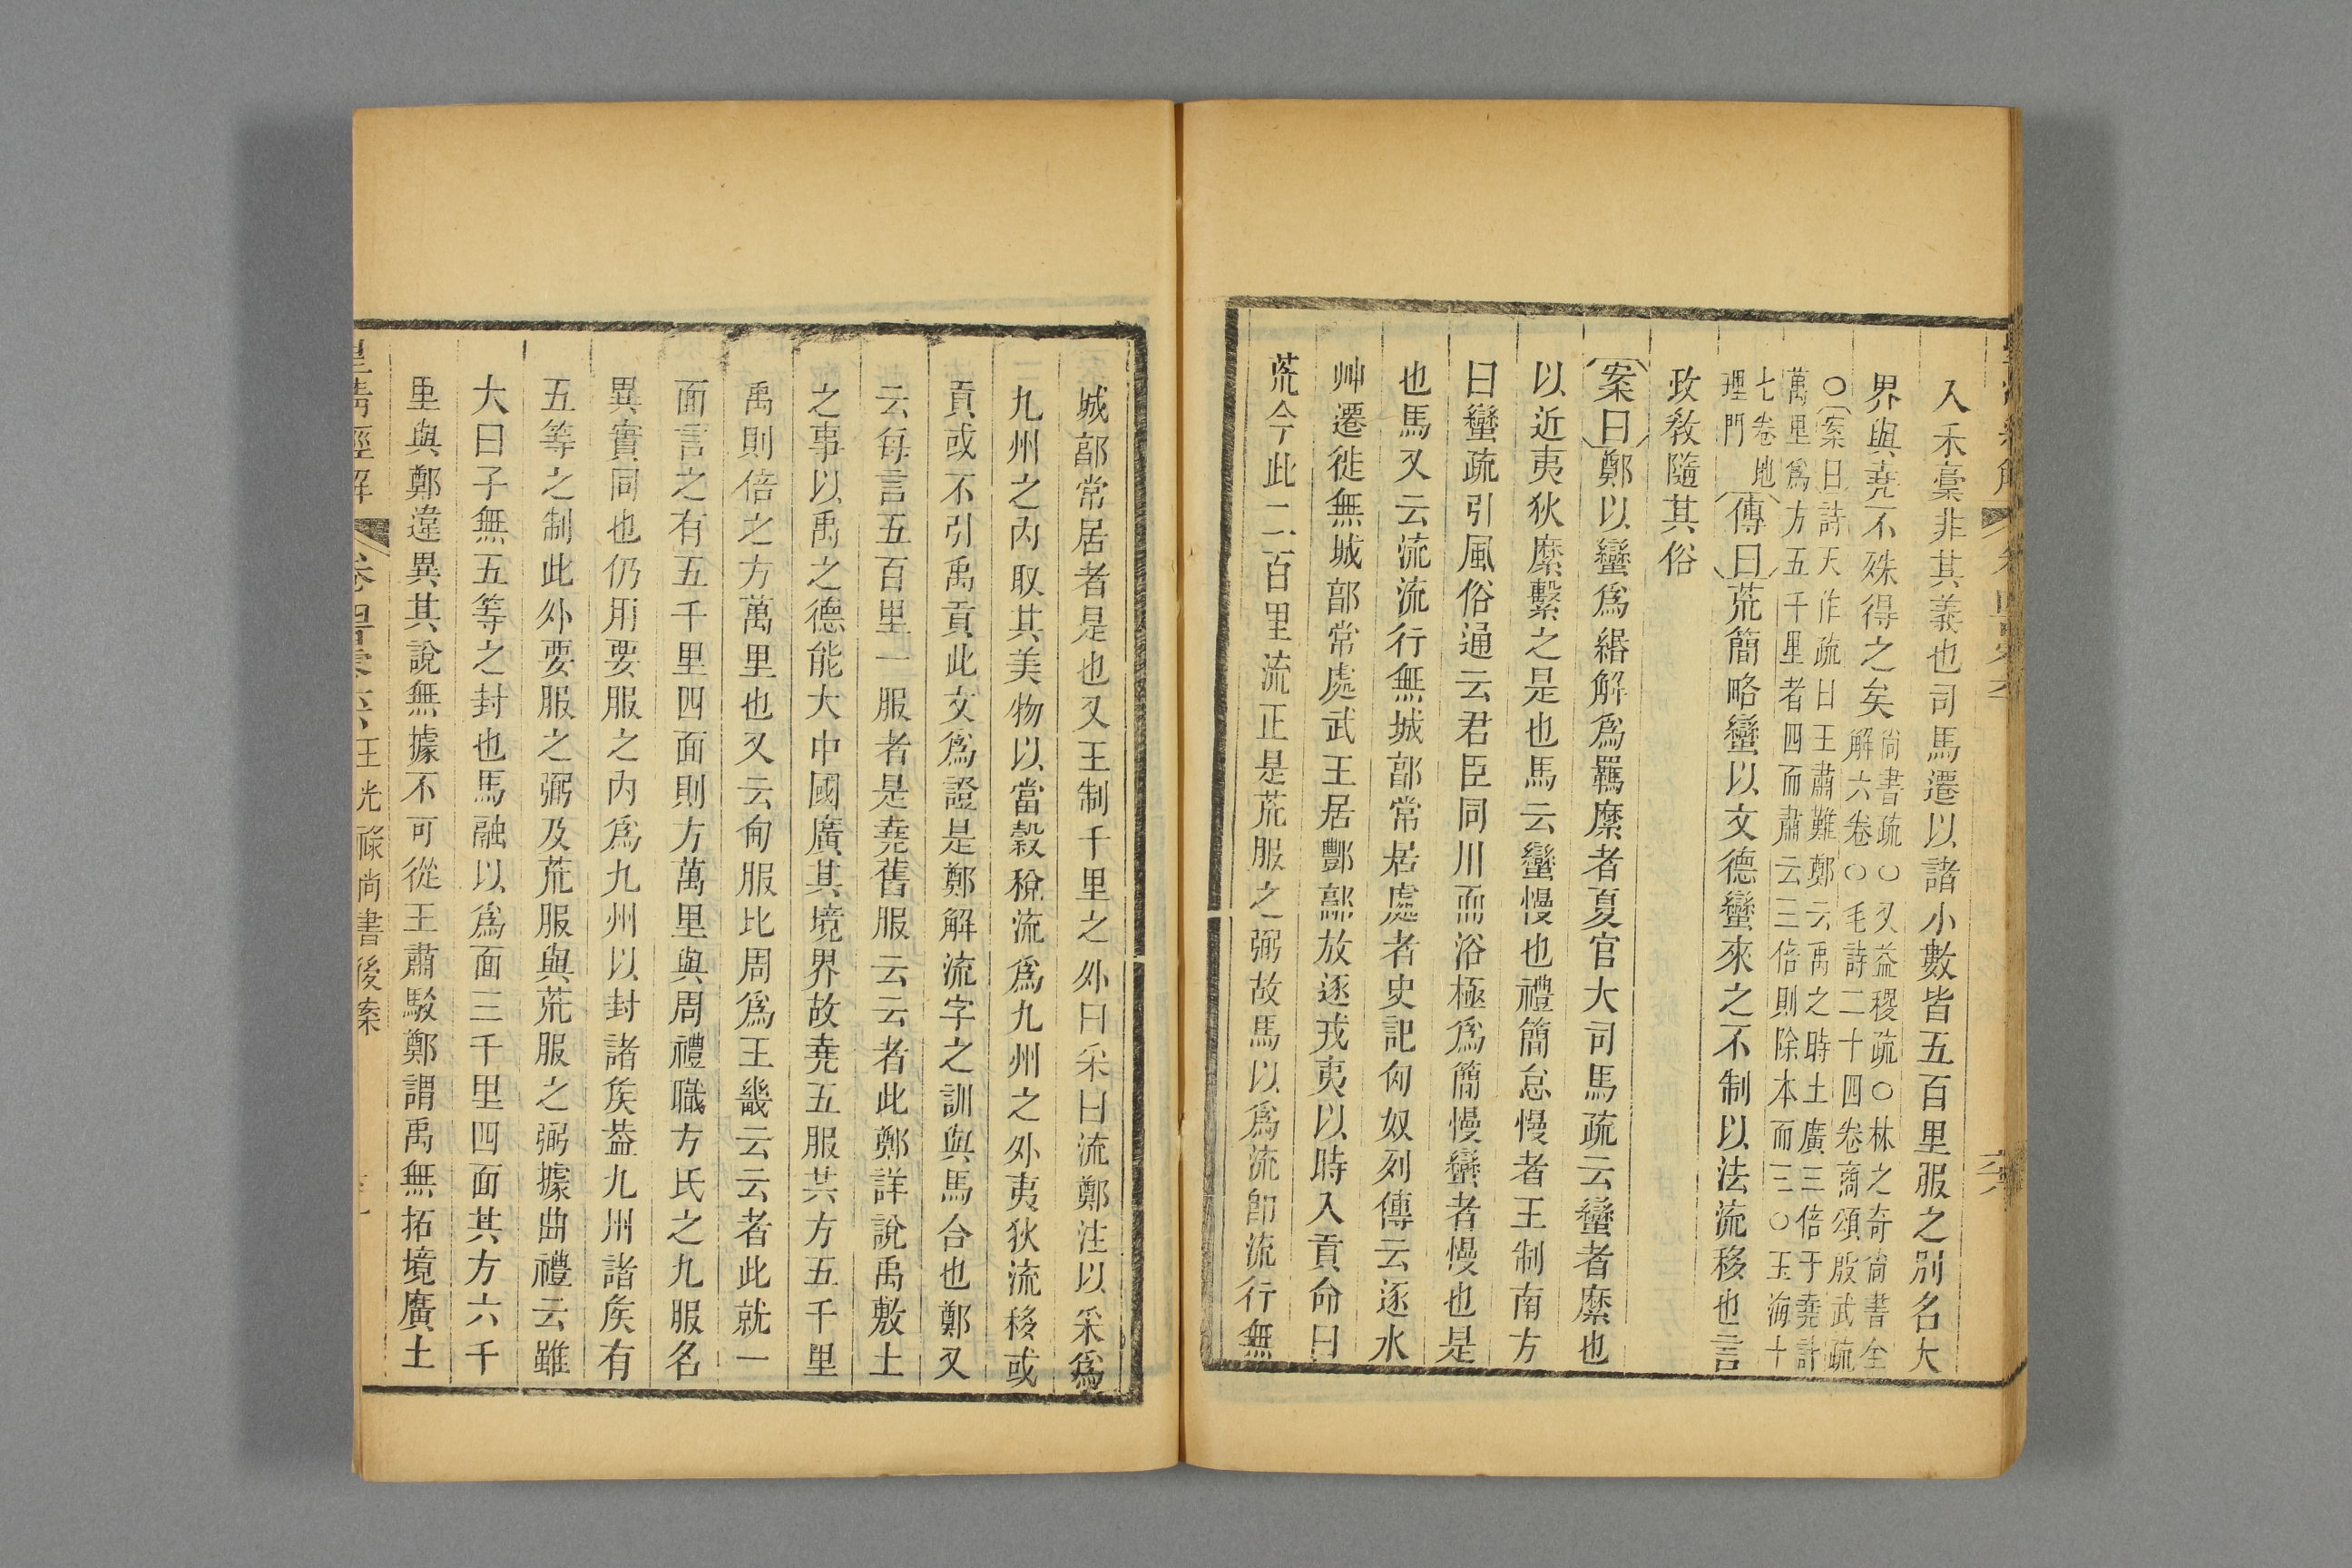 入禾稾非其義也司馬遷以諸小數皆五百里服之別名大
界與堯不殊得之矣
尚書疏○又益稷疏○林之奇尚書全
解六卷○毛詩二十四卷商頌殷武疏
○案曰詩天作疏曰王肅難鄭云禹之時土廣三倍于堯計
萬里爲方五千里者四而肅云三倍則除本而三○玉海十
七卷地
理門
傳曰荒簡略蠻以文德蠻來之不制以法流移也言
政敎隨其俗
案曰鄭以蠻爲緡解爲羈縻者夏官大司馬疏云蠻者縻也
以近夷狄縻繫之是也馬云蠻慢也禮簡怠慢者王制南方
曰蠻疏引風俗通云君臣同川而浴極爲簡慢蠻者慢也是
也馬又云流流行無城郭常居處者史記匈奴列傳云逐水
艸遷徙無城郭常處武王居酆鄗放逐戎夷以時入貢命曰
荒今此二百里流正是荒服之弼故馬以爲流卽流行無
城郭常居者是也又王制千里之外曰采曰流鄭注以采爲
九州之內取其美物以當穀稅流爲九州之外夷狄流移或
貢或不引禹貢此文爲證是鄭解流字之訓與馬合也鄭又
云每言五百里一服者是堯舊服云云者此鄭詳說禹敷土
之事以禹之德能大中國廣其境界故堯五服共方五千里
禹則倍之方萬里也又云甸服比周爲王畿云云者此就一
面言之有五千里四面則方萬里與周禮職方氏之九服名
異實同也仍用要服之內爲九州以封諸矦葢九州諸矦有
五等之制此外要服之弼及荒服與荒服之弼據曲禮云雖
大曰子無五等之封也馬融以爲面三千里四面其方六千
里與鄭違異其說無據不可從王肅駁鄭謂禹無拓境廣土
皇淸經解 卷四百零六 王光祿尚書後案